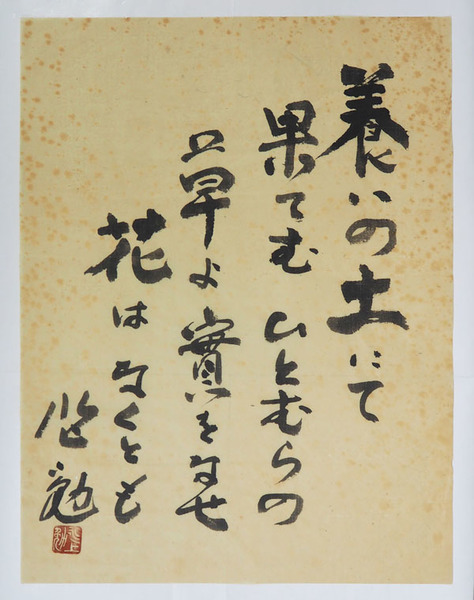 養いの土にて
果てむ ひとむらの
草よ 實をなせ
花は なくとも
水上勉